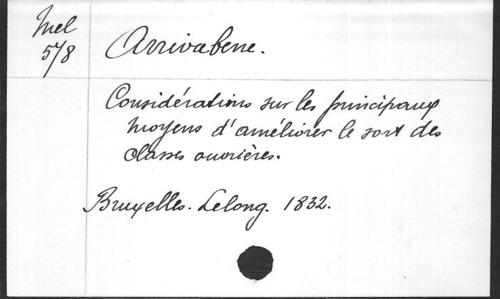 Mel
5/8
Arrivabene.
Considérations sur les principaux
moyens d'améliorer le sort des
classes ouvrières.
Bruxelles. Lelong. 1832.